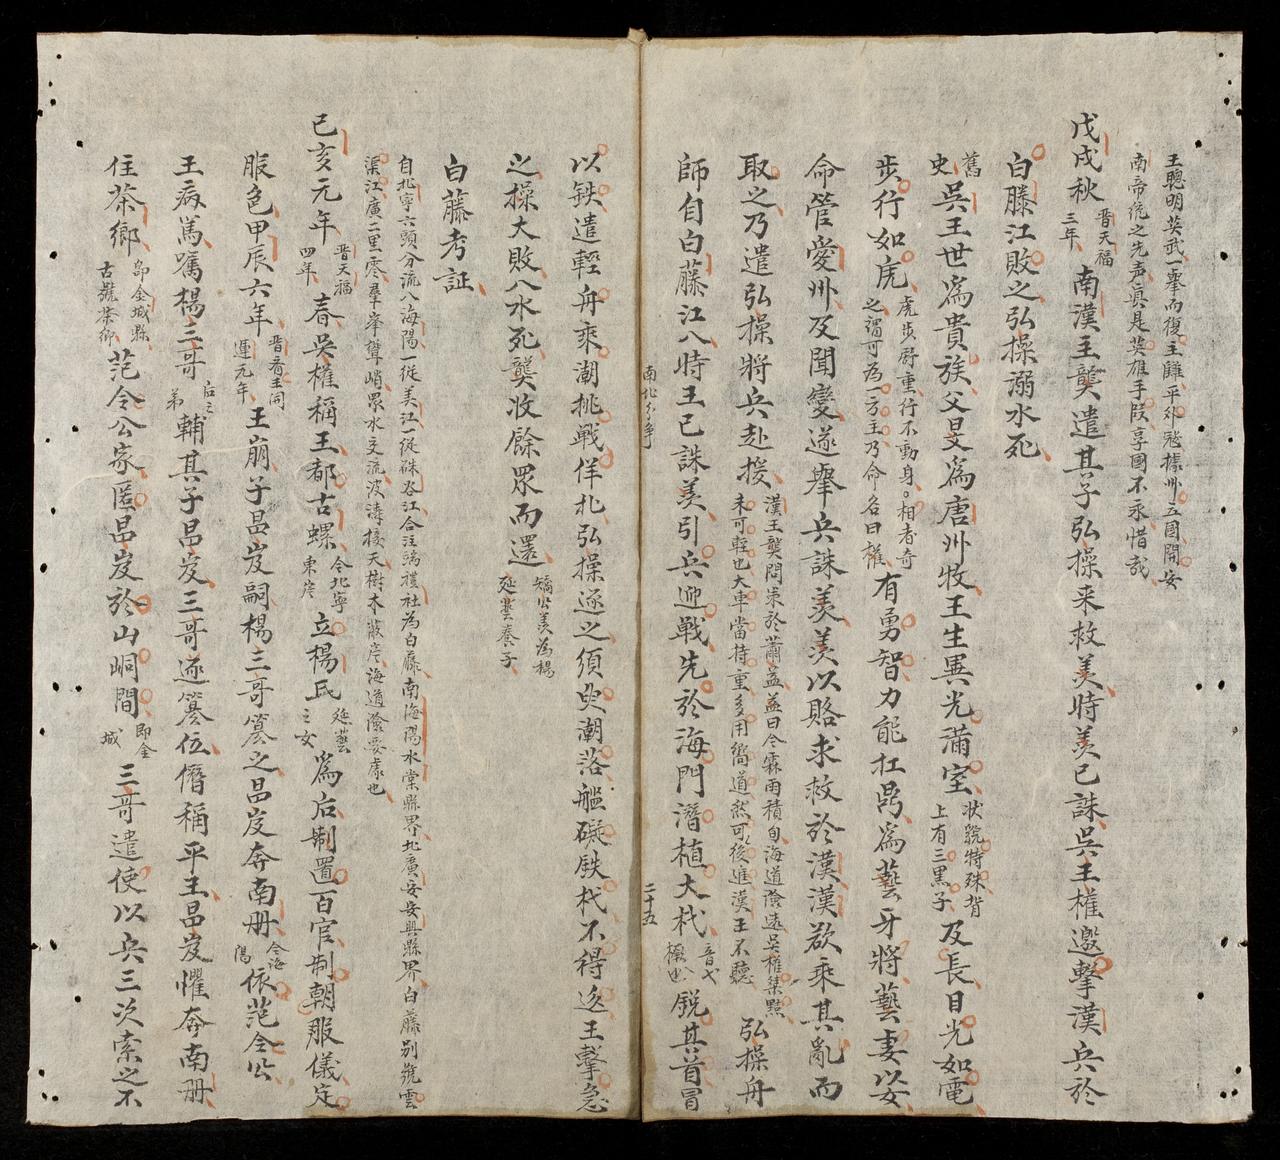 王聰明英武一舉而復主讎平外寇據州五國開安
南帝統之先声真是英雄手段享國不永惜哉
戊戌秋晉天福三年南漢王龑遣其子弘操来救羨時羨已誅吳王權邀擊漢兵於
白滕江敗之弘操溺水死
舊史吳王世爲貴族父旻爲唐州牧王生異光滿室状貌特殊背上有三黒子及長目光如電
步行如虎虎步爵重行不動身。相者奇之謂可為一方主乃命名曰權有勇智力能扛鼎爲藝牙將藝妻以女
命管愛州及聞變遂舉兵誅羨羨以賂求救於漢漢欲乘其亂而
取之乃遣弘操將兵赴援漢王龑問策於蕭益益曰今霖雨積旬海道險遠吳權桀黠未可輕也大車當持重多用嚮道然可後進漢王不聽弘操舟
師自白藤江入時王已誅羨引兵迎戰先於海門潛植大杙音弋橛也銳其首冒
南北分爭
二十五
以鉄遣輕舟乘潮挑戦佯北弘操逐之須臾潮落艦礙鉄杙不得返王擊急
之操大敗入水死龑收餘眾而還矯公羨為楊延藝養子
白藤考証
自北寧六頭分流入海陽一從美江一從硃谷江合注端禮社為白藤南海陽水棠縣界北廣安安興縣界白藤別號雲
渠江廣二里零羣峯聳峭眾水交流波濤接天樹木蔽岸海道險要處也
己亥元年晋天福四年春吳權稱王都古螺今北寧東岸立楊氏延藝之女爲后制置百官制朝服儀定
服色甲辰六年晋斉王開運元年王崩子昌岌嗣楊三哥簒之昌岌奔南册今海陽依范令公
王病篤囑楊三哥后之弟輔其子昌岌三哥逐簒位僭稱平王昌岌懼奔南册
住茶鄉即金城縣古號茶鄉范令公家匿昌岌於山峒間即金城三哥遣使以兵三次索之不